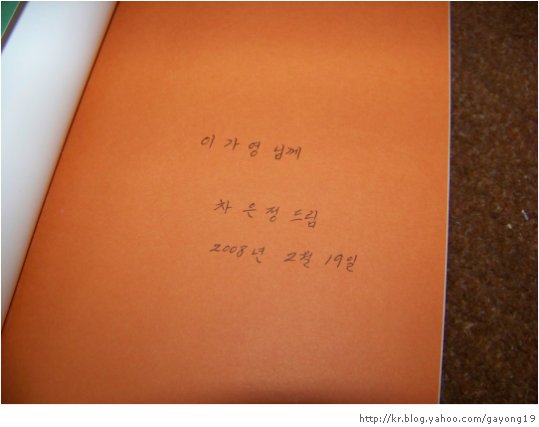 이가영 님께
차은정 드림
2008년 2월 19일
http://kr.blog.yahoo.com/gayong19